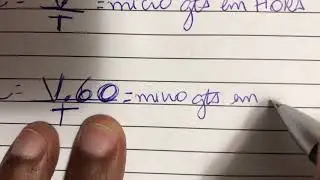 = V = micro gts em HORA
T
= V.60 = micro gts em
T